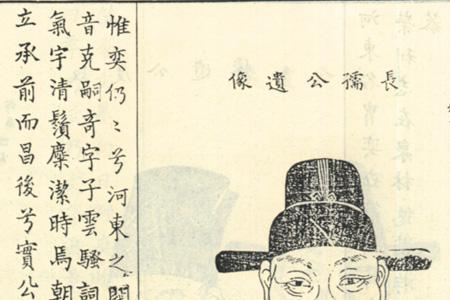 長孺公遺像
惟奕仍〻兮河東之
音克嗣奇字子雲騷詞
氣宇清鬚麋潔時焉朝
立承前而昌後兮實公